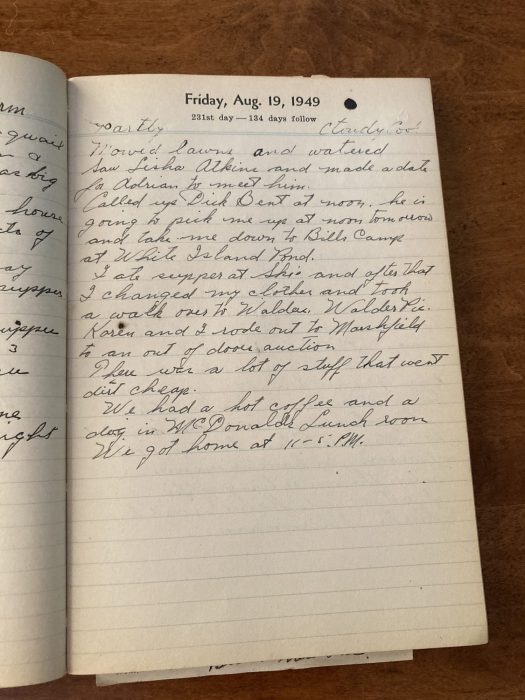 rm
quaix
n a
as big
house
ts of
ay
supper
uppe
3
me
ight
Friday, Aug. 19, 1949
231st day — 134 days follow
Partly Cloudy Cool
Mowed lawns and watered
Saw Lisha Atkins and made a date
for Adrian to meet him.
Called up Dick Bent at noon. he is
going to pick me up at noon tomorrow
and take me down to Bills Camp
at White Island Pond.
I ate supper at and after that
I changed my clothes and took
a walk over to Waldes. Walder Pie.
Karen and I rode out to Marshfield
to an out of door auction
There was a lot of stuff that went
dirt cheap.
We had a hot coffee and a
dog in McDonalds Lunch room
We got home at 11-5. P.M.